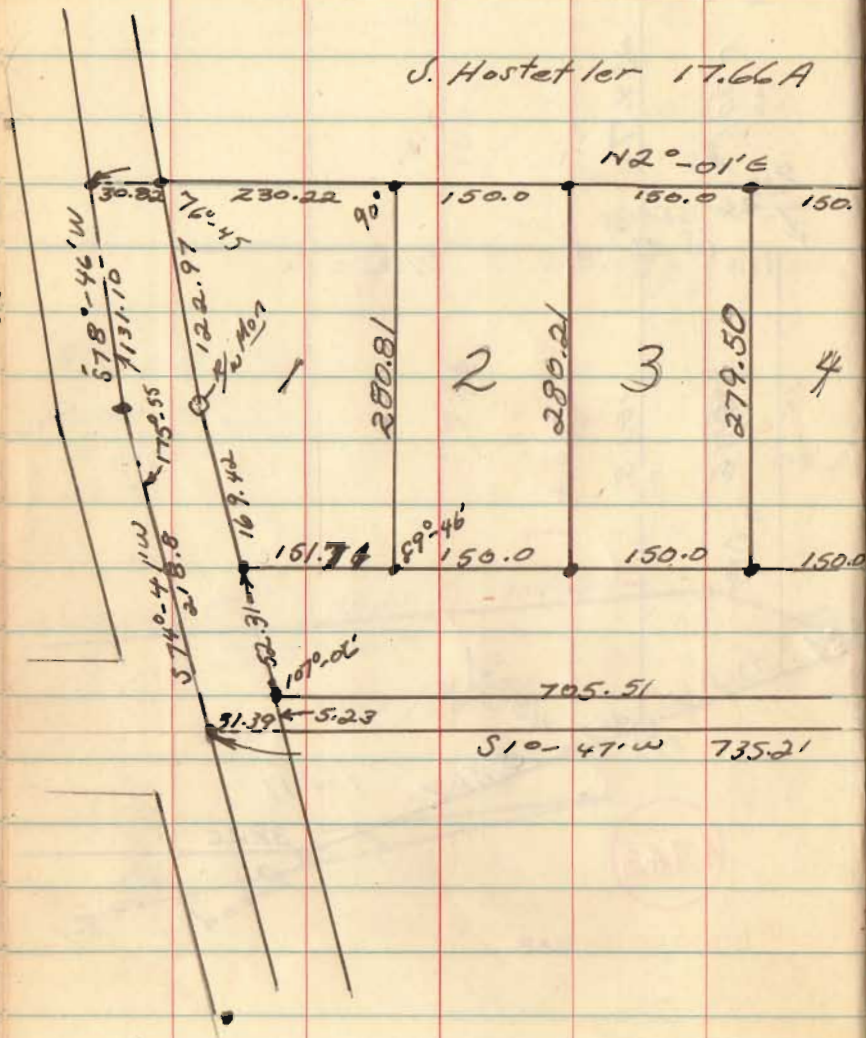 S. Hostetler 17.66A
N2°-01'E
30.82 230.22 150.0 150.0 150.
76°-45
90°
S78°-46'W
131.10
122.97
R/W Mon
1 2 3 4
280.81 280.21 279.50
175°-55
169.42
89°-46'
151.71 150.0 150.0 150.0
S74°-41'W
218.8
52.31
107°-06'
705.51
31.39 5.23
S10-47'W 735.21